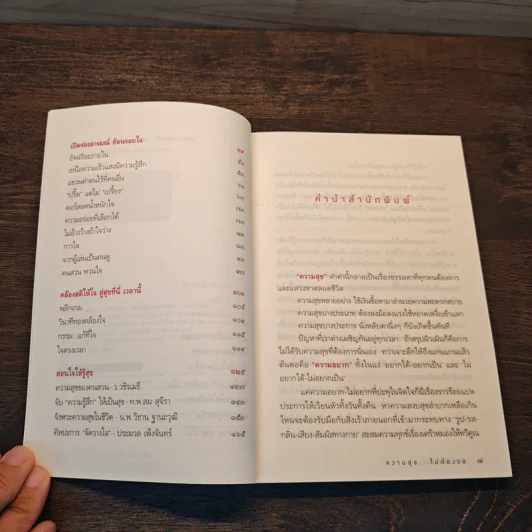 เปิดร่องอารมณ์ ย้อนรอยใจ
อัจฉริยะภายใน
เหนือความเร็วแสงมีความรู้สึก
แขวนค่าตนไว้ที่คนอื่น
"เปรี๊ด" แต่ไม่ "เปรี้ยง"
คอร์สลดน้ำหนักใจ
ความอร่อยที่เลือกได้
ไม่อ้างว้างถ้าใจว่าง
กาวใจ
จากผู้เล่นเป็นคนดู
คนสวน ทวนใจ ๙๗
คล้องสติให้ใจ สู่สุขที่นี่ เวลานี้ ๑๐๑
พลิกเกม ๑๐๕
วินาทีทองคล้องใจ
กรรม : แก้ที่ใจ
ใจตรงเวลา
สอนใจให้รู้สุข ๑๒๕
ความสุขของคนสวน - ว.วชิรเมธี ๑๒๗
จับ "ความรู้สึก" ให้เป็นสุข - ท.พ.สม สุจีรา
จังหวะความสุขในชีวิต - น.พ.วิธาน ฐานะวุฑฒ์ ๑๕๓
ศิลปะการ "จัดวางใจ" - ประมวล เพ็งจันทร์ ๑๖๕
คำนำสำนักพิมพ์
"ความสุข" คำคำนี้กลายเป็นเรื่องธรรมดาที่ทุกคนต้องการ
และแสวงหาตลอดชีวิต
ความสุขหลายอย่าง ใช้เงินซื้อหามาอำนวยความสะดวกสบาย
ความสุขบางประเภท ต้องลงมือลงแรงใช้หยาดเหงื่อเข้าแลก
ความสุขบางประการ นั่งหลับตานิ่งๆ ก็บังเกิดขึ้นทันที
ปัญหาที่เราต่างเผชิญกันอยู่ทุกเวลา ถ้าสรุปผิวเผินก็คือการ
ไม่ได้รับความสุขที่ต้องการนั่นเอง ทว่าเจาะลึกให้ถึงแก่นแกนแล้ว
ต้นตอคือ "ความอยาก" ทั้งในแง่ "อยากได้-อยากเป็น" และ "ไม่
อยากได้-ไม่อยากเป็น"
แต่ความอยาก-ไม่อยากที่ปะทุในจิตใจก็มีเรื่องราวร้อยแปด
ประการให้เวียนหัวทั้งวันทั้งคืน หาความสงบสุขลำบากเหลือเกิน
ไหนจะต้องรับมือกับสิ่งเร้าภายนอกที่เข้ามากระทบทาง "รูป-รส-
กลิ่น-เสียง-สัมผัสทางกาย" สะสมความทุกข์เรื่องเศร้าหมองให้ทวีคูณ
ความสุข ไม่ต้องขอ ๗